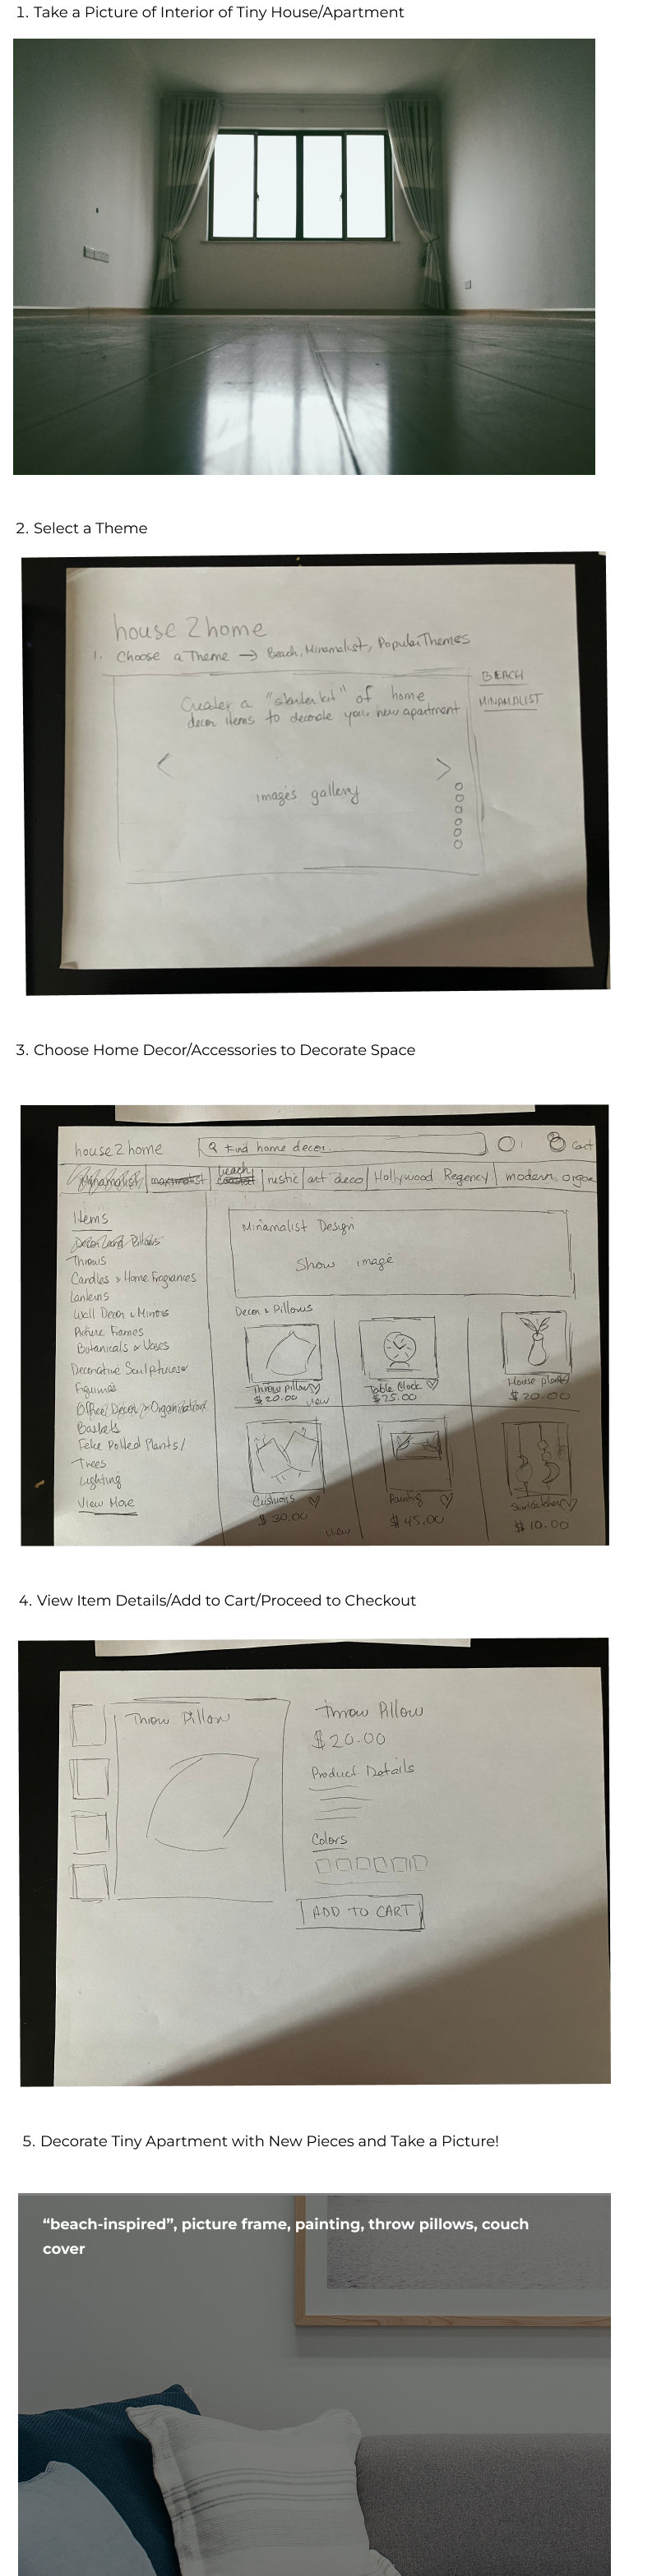 1. Take a Picture of Interior of Tiny House/Apartment
2. Select a Theme
house 2 home
1. Choose a Theme → Beach, Minamalist, Popular Themes
BEACH
MINAMALIST
Creates a "starter kit" of home
decor items to decorate your new apartment
< >
images gallery
3. Choose Home Decor/Accessories to Decorate Space
house 2 home
Find home decor..
Cart
Minamalist
beach
rustic
art deco
Hollywood Regency
modern
Items
Decor and Pillows
Throws
Candles & Home Fragrances
Lanterns
Wall Decor & Mirrors
Picture Frames
Botanicals & Vases
Decorative Sculptures
Figurines
Office Decor & Organization
Baskets
Fake Potted Plants/
Trees
Lighting
View More
Minamalist Design
Show image
Decor & Pillows
Throw pillow
$20.00
view
Table Clock
$25.00
House plant
$20.00
Cushions
$30.00
view
Painting
$45.00
Suncatcher
$10.00
4. View Item Details/Add to Cart/Proceed to Checkout
Throw Pillow
Throw Pillow
$20.00
Product Details
Colors
ADD TO CART
5. Decorate Tiny Apartment with New Pieces and Take a Picture!
“beach-inspired”, picture frame, painting, throw pillows, couch
cover